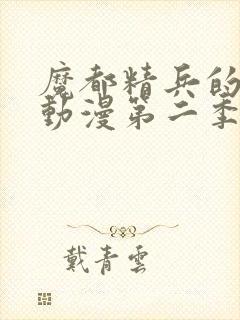 魔都精兵的
動漫第二季
戴青雲